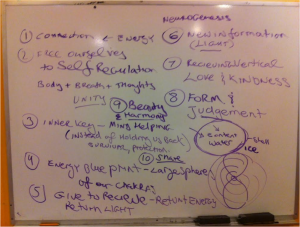 NEUROGENESIS
① Connection - ENERGY
② FREE OURSELVES
to Self Regulation
Body + Breath + Thoughts
UNITY
③ INNER Key - MIND Helping
(instead of Holding US Back)
survival, protection
④ ENERGY Blue print - Large Sphere
of our CHAKRAS
⑤ Give to Receive - Return Energy
Return LIGHT
⑥ NEW INformation
(LIGHT)
⑦ Receiving Vertical
LOVE & KINDNESS
⑧ FORM &
Judgement
⑨ Beauty
& Harmony
⑩ Share
water
Shell
ICE